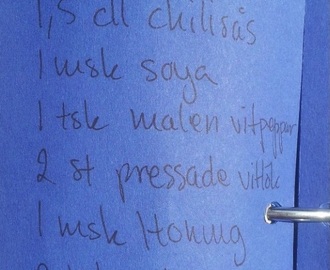 1,5 dl chilisås
1 msk soya
1 tsk malen vitpeppar
2 st pressade vitlök
1 msk Honung